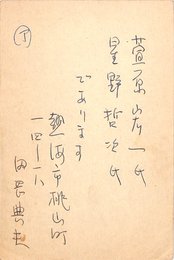 萱原宏一氏
星野哲次氏
であります
熱海市桃山町
一四ー一八
田辰典夫